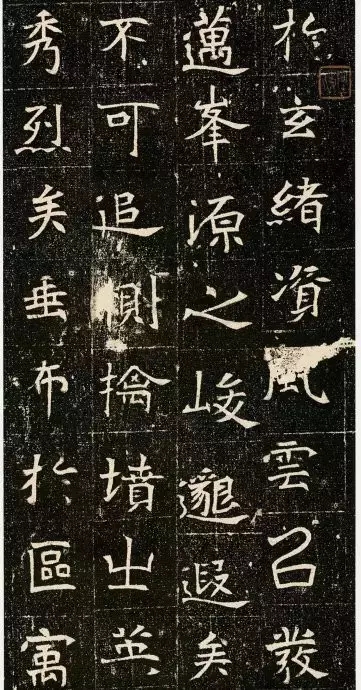 於玄緒資風雲召發
邁峯源之峻邈遐矣
不可追測擒墳出英
秀烈矣垂布於區㝢